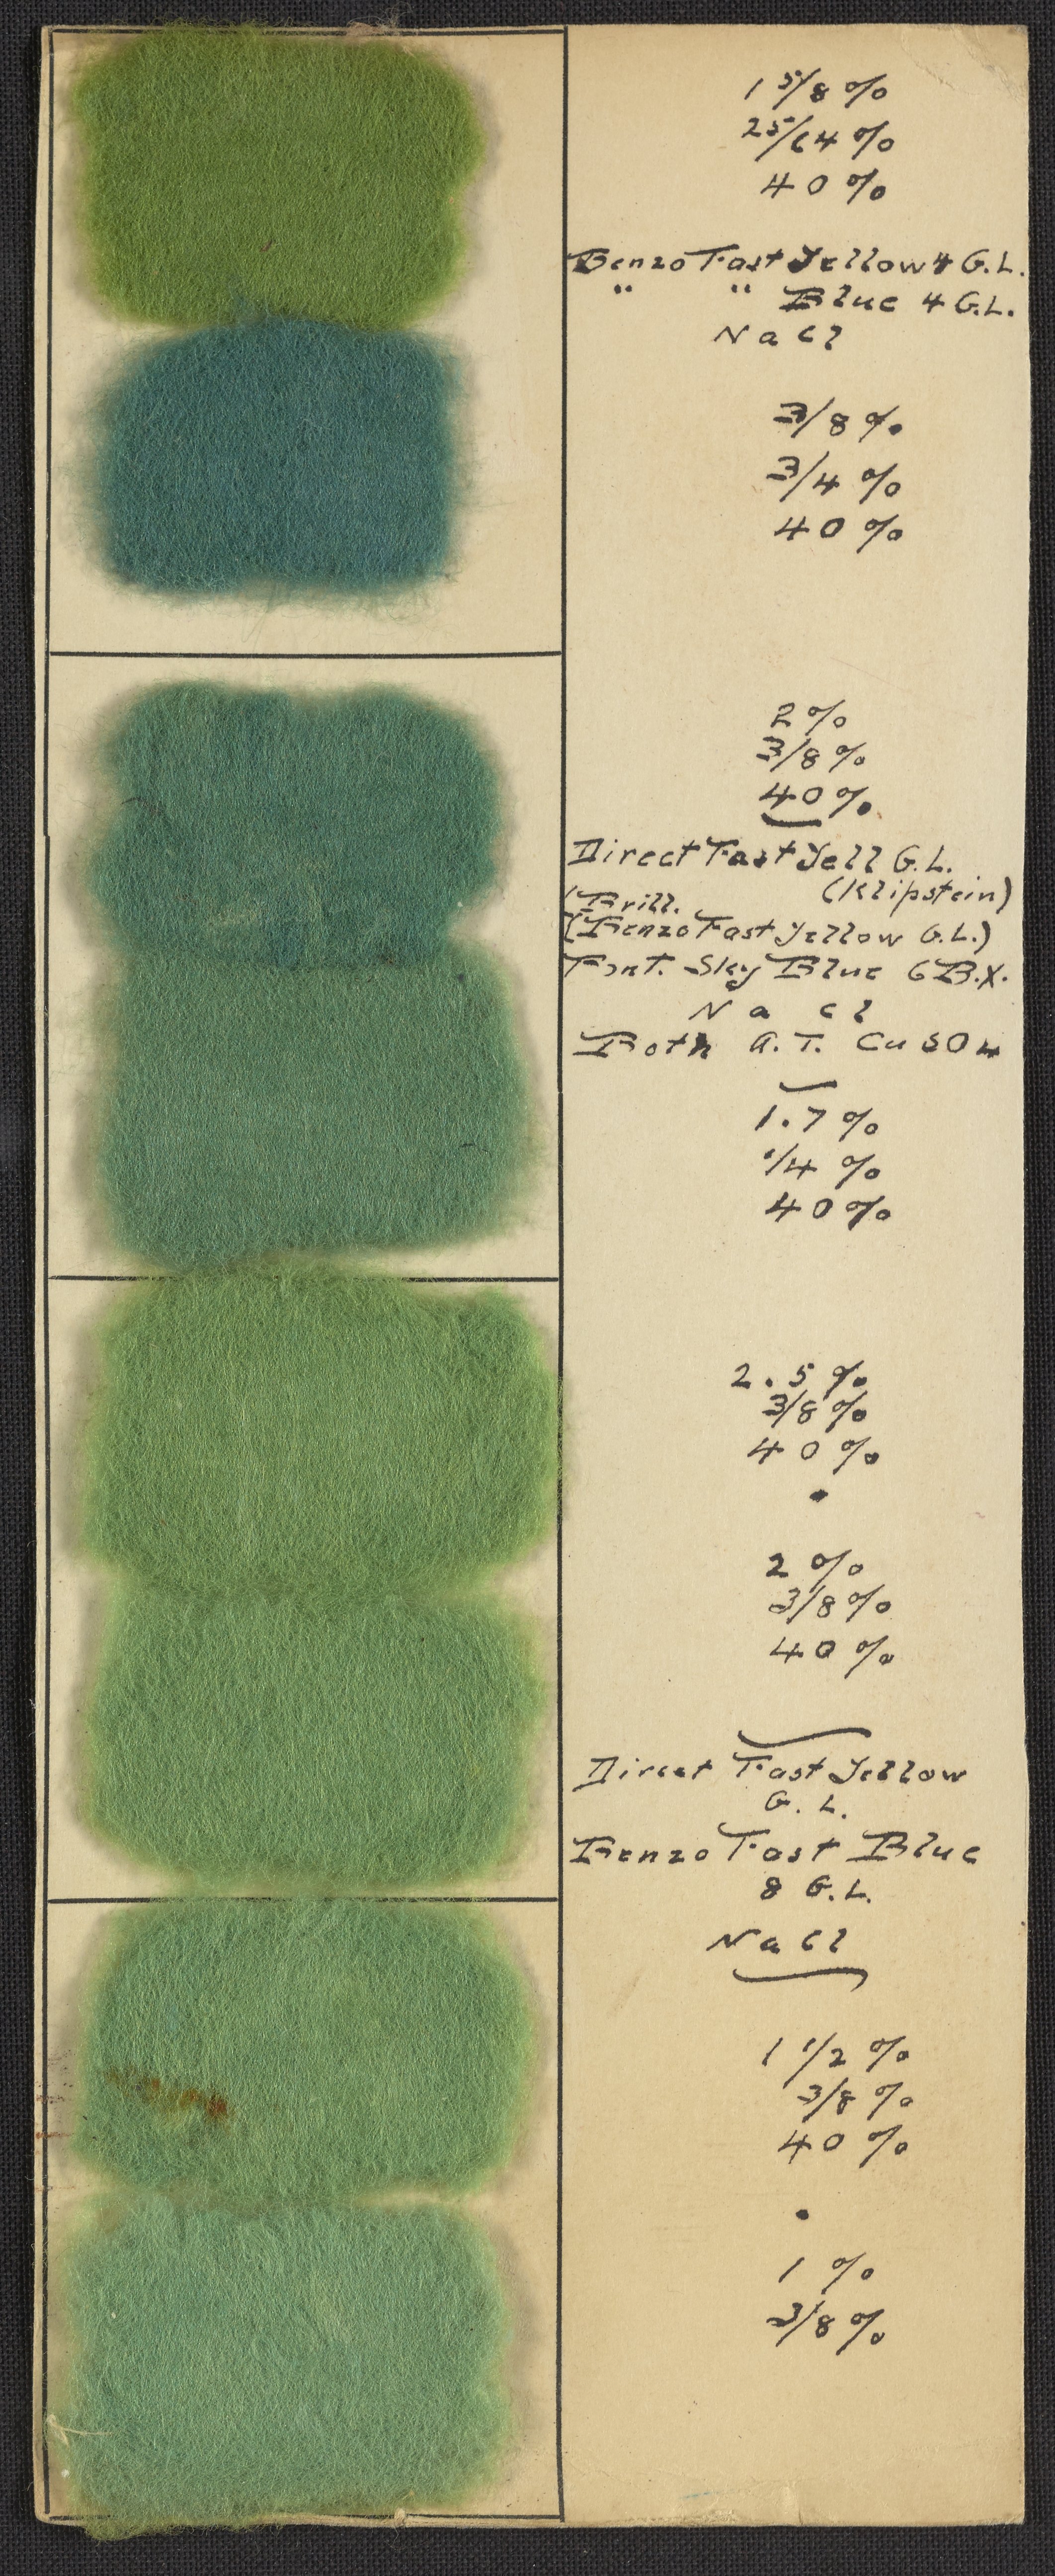 1 5/8 %
25/64 %
40 %
Benzo Fast Yellow 4 G.L.
" " Blue 4 G.L.
NaCl
3/8 %
3/4 %
40 %
2 %
3/8 %
40 %
Direct Fast Yell G.L.
(Klipstein)
Brill.
(Benzo Fast Yellow G.L.)
Pont. Sky Blue 6 B.X.
Na Cl
Both A.T. CuSO4
1.7 %
1/4 %
40 %
2.5 %
3/8 %
40 %
2 %
3/8 %
40 %
Direct Fast Yellow
G.L.
Benzo Fast Blue
8 G.L.
NaCl
1 1/2 %
3/8 %
40 %
1 %
3/8 %